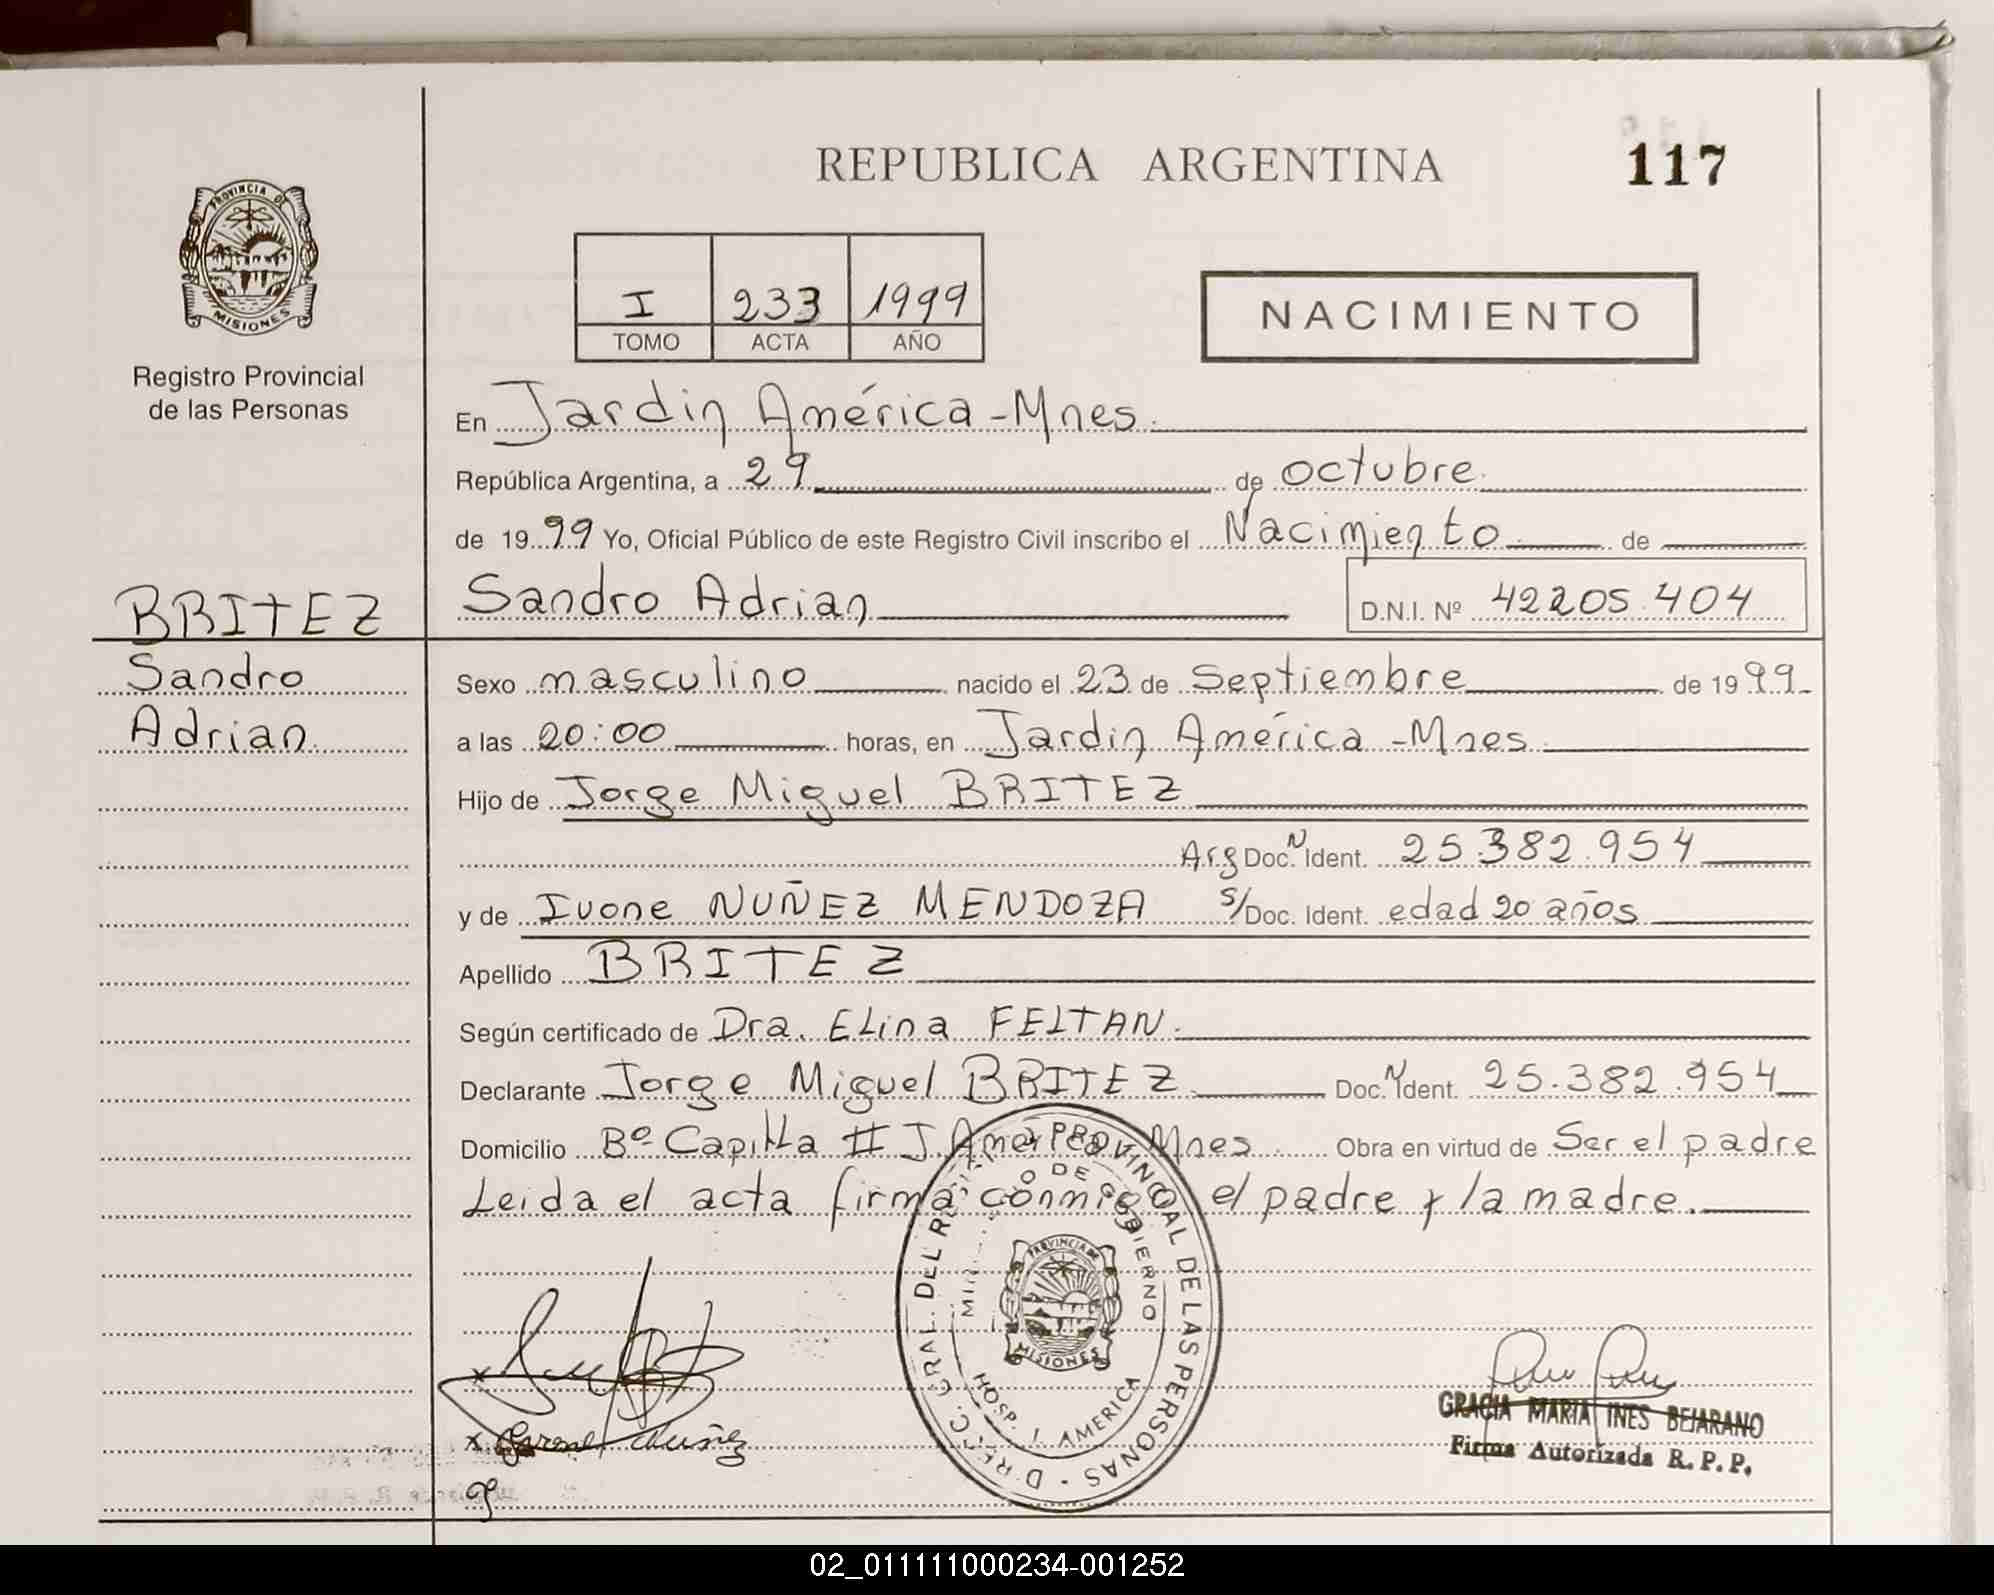 REPUBLICA ARGENTINA
117
PROVINCIA DE
MISIONES
Registro Provincial
de las Personas
I 233 1999
TOMO ACTA AÑO
NACIMIENTO
En Jardin América - Mnes.
República Argentina, a 29 de octubre.
de 1999 Yo, Oficial Público de este Registro Civil inscribo el Nacimiento de
BRITEZ
Sandro
Adrian
Sandro Adrian D.N.I. Nº 42205.404
Sexo masculino nacido el 23 de Septiembre de 1999.
a las 20:00 horas, en Jardin América - Mnes.
Hijo de Jorge Miguel BRITEZ
Arg Doc. N Ident. 25.382.954
y de Ivone NUÑEZ MENDOZA s/Doc. Ident. edad 20 años
Apellido BRITEZ
Según certificado de Dra. Elina FELTAN.
Declarante Jorge Miguel BRITEZ Doc. N Ident. 25.382.954
Domicilio Bº Capilla II J. America Mnes Obra en virtud de Ser el padre
Leida el acta firma conmigo el padre y la madre.
DIRECC. GRAL. DEL REGISTRO PROVINCIAL DE LAS PERSONAS -
MINISTERIO DE GOBIERNO
PROVINCIA DE
MISIONES
HOSP. J. AMERICA
x
x Nuñez
GRACIA MARIA INES BEJARANO
Firma Autorizada R.P.P.
02_011111000234-001252